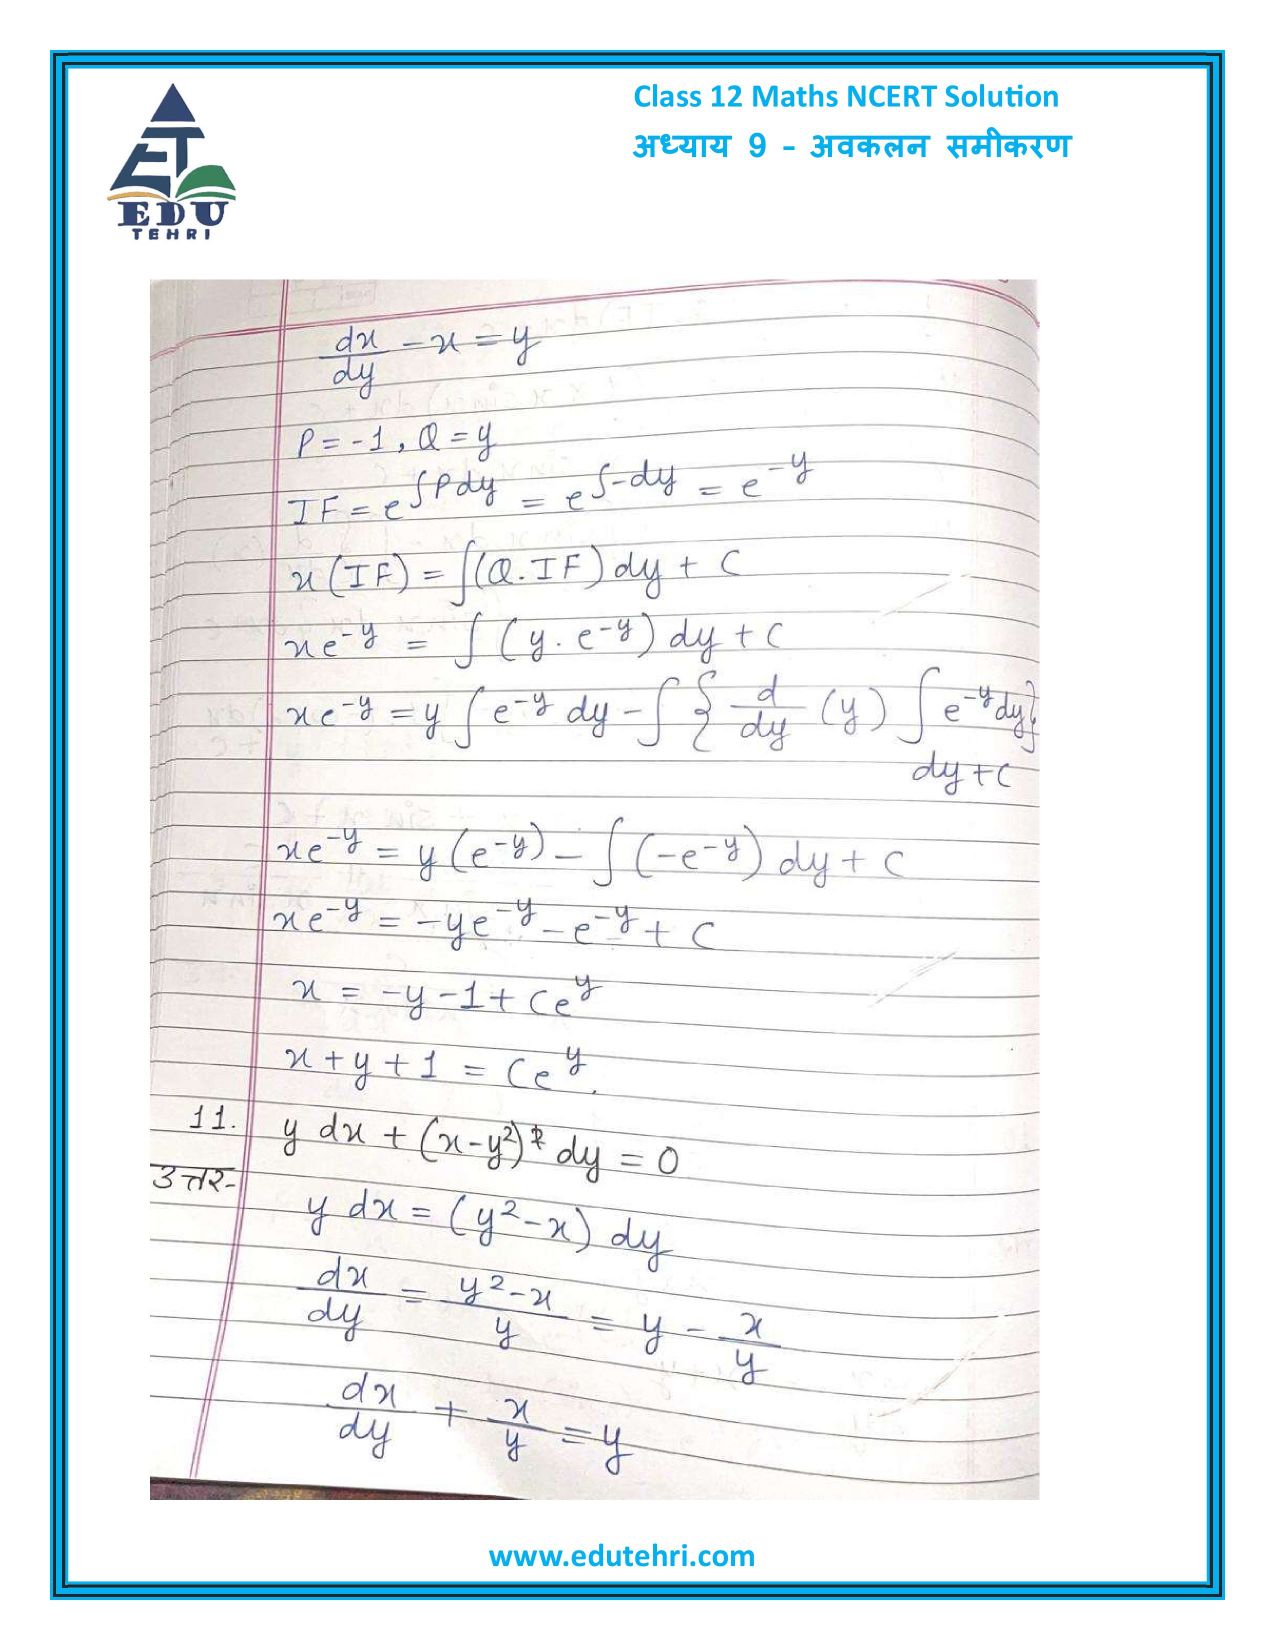 Class 12 Maths NCERT Solution
अध्याय 9 - अवकलन समीकरण
EDU
TEHRI
dx/dy - x = y
P = -1, Q = y
IF = e^∫Pdy = e^∫-dy = e^-y
x(IF) = ∫(Q.IF)dy + C
xe^-y = ∫(y.e^-y)dy + C
xe^-y = y∫e^-y dy - ∫{d/dy (y) ∫e^-y dy}
dy + C
xe^-y = y(e^-y) - ∫(-e^-y)dy + C
xe^-y = -ye^-y - e^-y + C
x = -y - 1 + Ce^y
x + y + 1 = Ce^y.
11. y dx + (x - y²) dy = 0
उत्तर-
y dx = (y² - x) dy
dx/dy = (y² - x)/y = y - x/y
dx/dy + x/y = y
www.edutehri.com